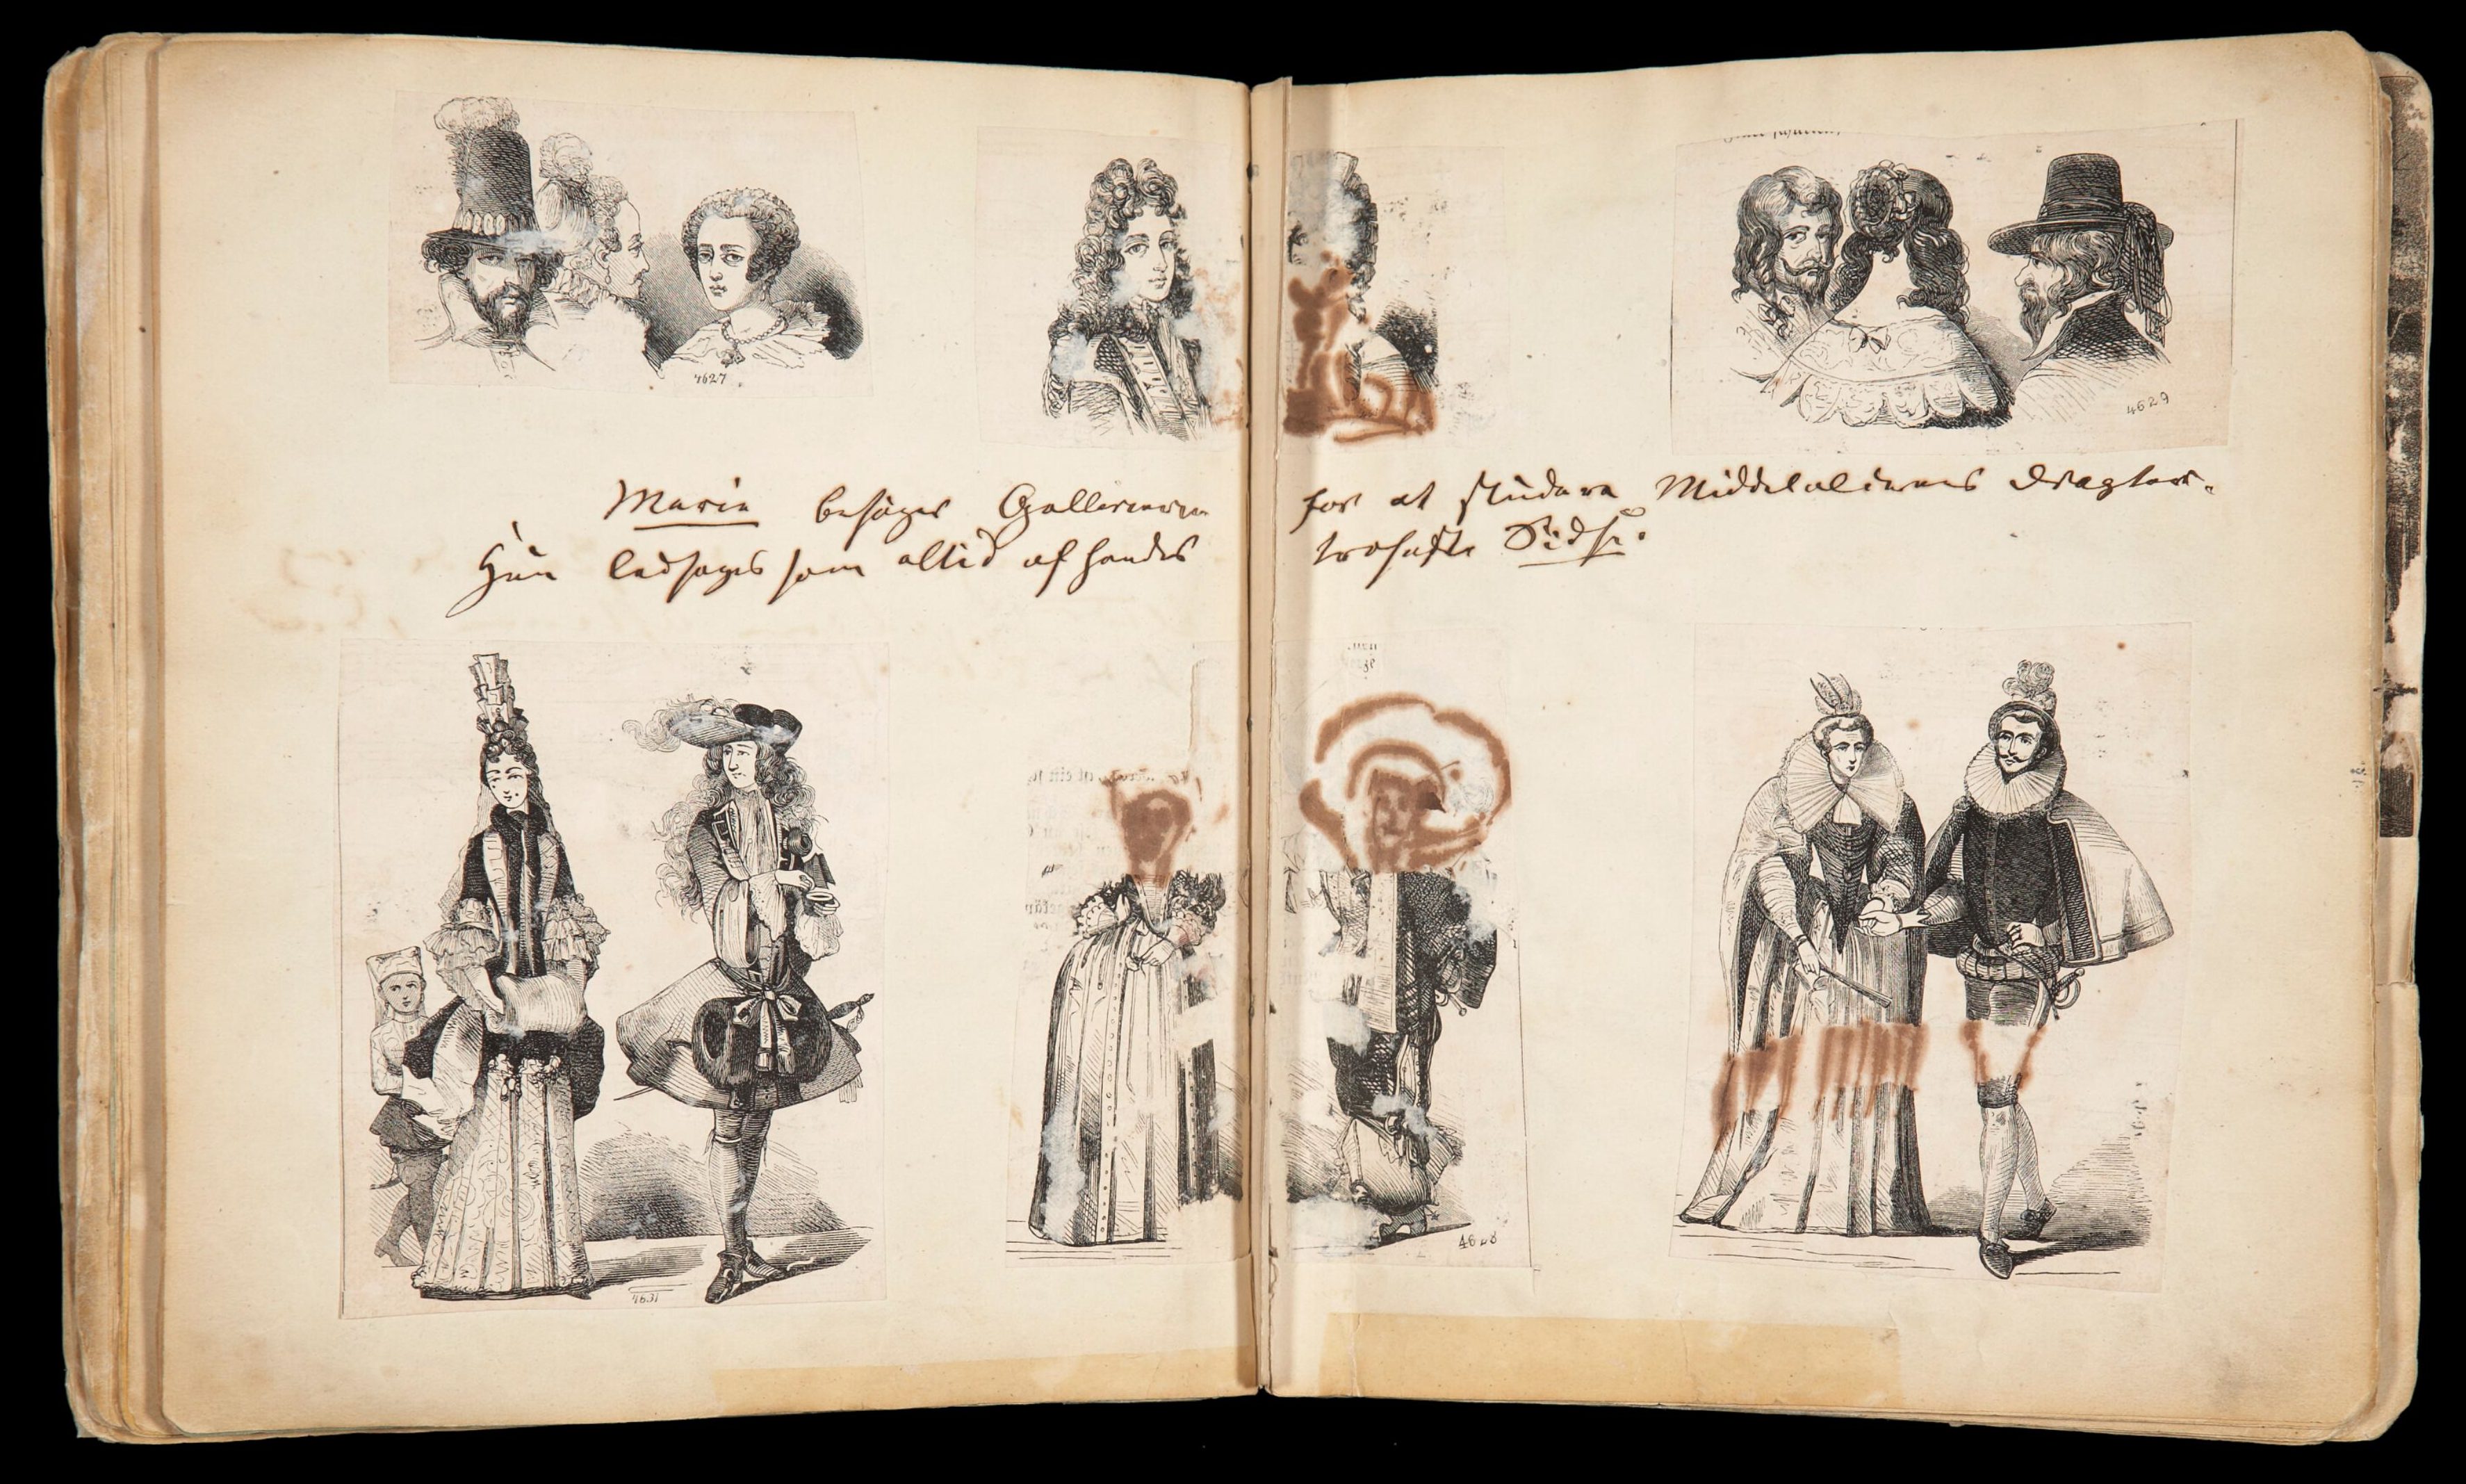 4627
4629
Marie besøger Gallerierne for at studere Middelalderens Dragter.
Hun ledsages som altid af hendes trofaste
4631